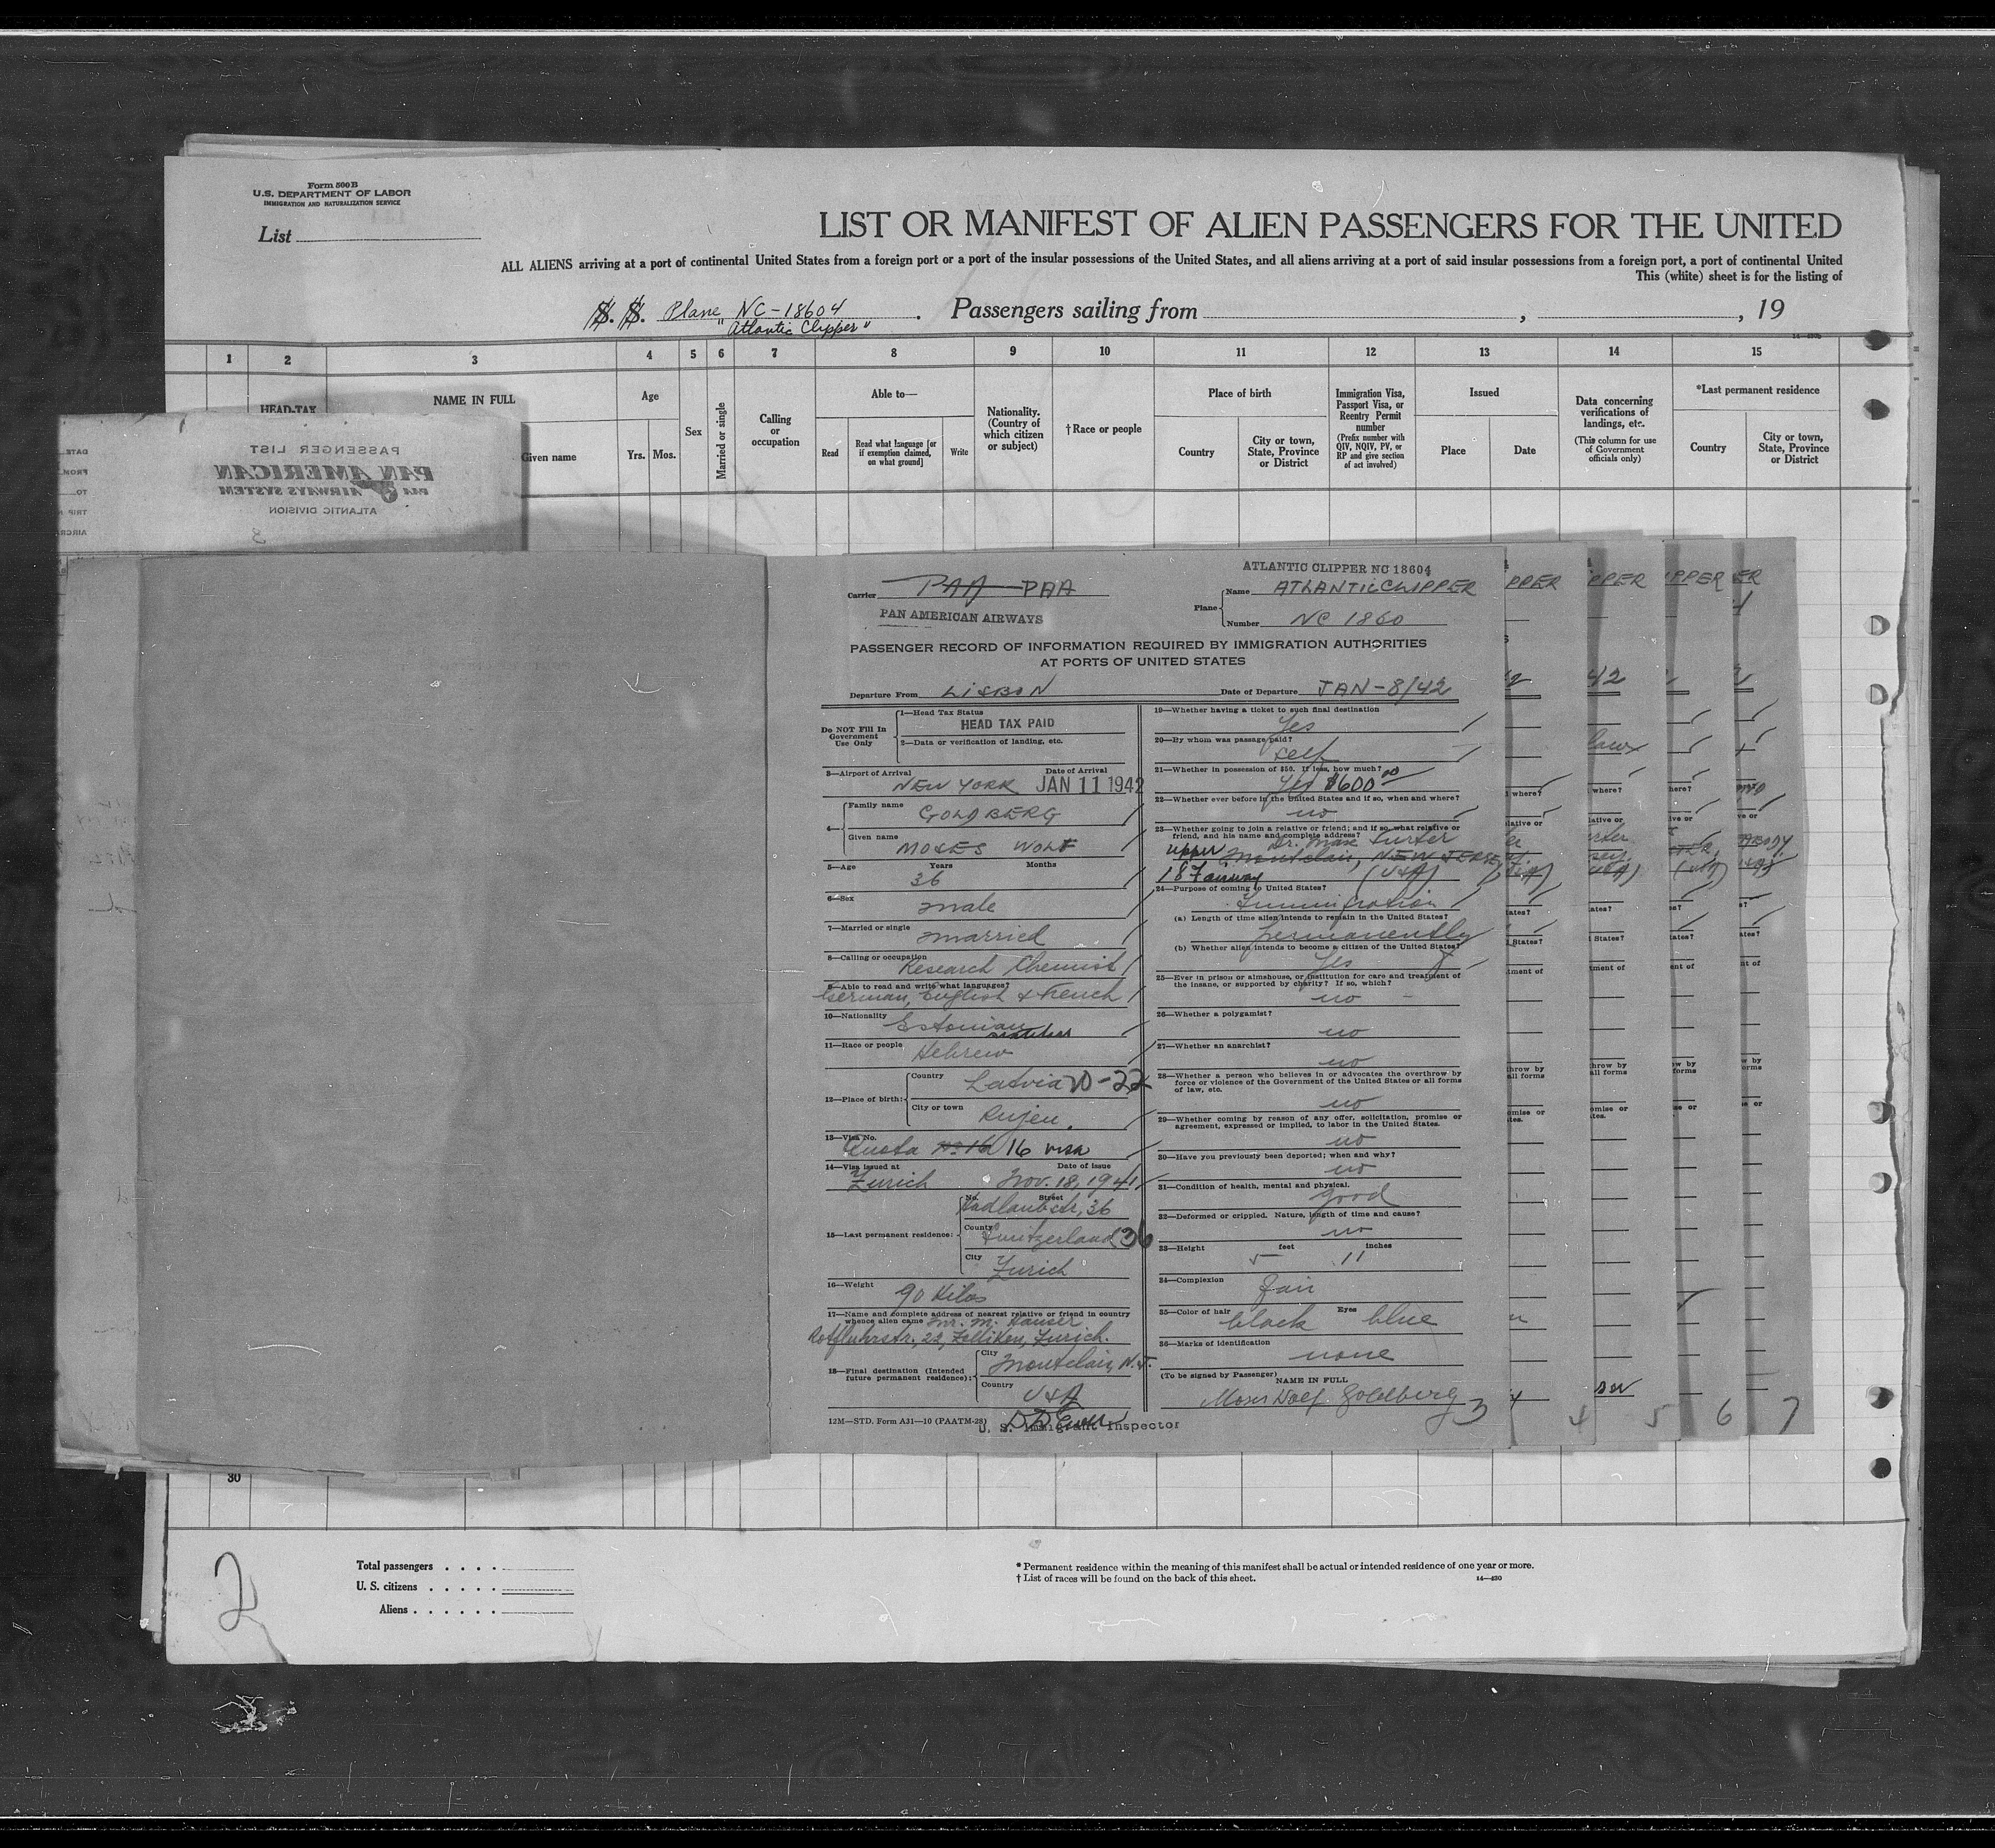 Form 500 B
U.S. DEPARTMENT OF LABOR
IMMIGRATION AND NATURALIZATION SERVICE
List
LIST OR MANIFEST OF ALIEN PASSENGERS FOR THE UNITED
ALL ALIENS arriving at a port of continental United States from a foreign port or a port of the insular possessions of the United States, and all aliens arriving at a port of said insular possessions from a foreign port, a port of continental United
This (white) sheet is for the listing of
S. S. Plane NC-18604 . Passengers sailing from , , 19
"Atlantic Clipper"
1 2 3 4 5 6 7 8 9 10 11 12 13 14 15
HEAD-TAX
NAME IN FULL
Given name
Age
Yrs. Mos.
Sex
Married or single
Calling or occupation
Able to—
Read
Read what language [or if exemption claimed, on what ground]
Write
Nationality. (Country of which citizen or subject)
†Race or people
Place of birth
Country
City or town, State, Province or District
Immigration Visa, Passport Visa, or Reentry Permit number
(Prefix number with QIV, NQIV, PV, or RP and give section of act involved)
Issued
Place
Date
Data concerning verifications of landings, etc.
(This column for use of Government officials only)
*Last permanent residence
Country
City or town, State, Province or District
PASSENGER LIST
PAN AMERICAN
PAA AIRWAYS SYSTEM
ATLANTIC DIVISION
3
ATLANTIC CLIPPER NC 18604
Carrier PAA PAA
PAN AMERICAN AIRWAYS
Plane
Name ATLANTIC CLIPPER
Number NC 1860
PASSENGER RECORD OF INFORMATION REQUIRED BY IMMIGRATION AUTHORITIES
AT PORTS OF UNITED STATES
Departure From LISBON
Date of Departure JAN-8/42
Do NOT Fill In Government Use Only
1—Head Tax Status
HEAD TAX PAID
2—Data or verification of landing, etc.
3—Airport of Arrival NEW YORK
Date of Arrival JAN 11 1942
4— Family name GOLDBERG
Given name MOSES WOLF
5—Age Years Months
36
6—Sex male
7—Married or single married
8—Calling or occupation Research Chemist
9—Able to read and write what languages?
German, English & French
10—Nationality Estonian
11—Race or people Hebrew
12—Place of birth:
Country Latvia 70-22
City or town Rujen.
13—Visa No.
Quota No. 16 16 visa
14—Visa issued at Zurich
Date of issue Nov. 18, 1941
15—Last permanent residence:
No. Street Hadlaubstr, 36
County Switzerland (36
City Zurich
16—Weight 90 Kilos
17—Name and complete address of nearest relative or friend in country
whence alien came Mr. M. Hauser
Rotfluhrstr, 22, Zolliken, Zurich.
18—Final destination (Intended future permanent residence):
City Montclair, N.J.
Country USA
12M—STD. Form A31—10 (PAATM-28)
U. S. Immigrant Inspector
19—Whether having a ticket to such final destination
Yes
20—By whom was passage paid?
self
21—Whether in possession of $50. If less, how much?
Yes $600 00
22—Whether ever before in the United States and if so, when and where?
no
23—Whether going to join a relative or friend; and if so, what relative or
friend, and his name and complete address?
Dr. Max Furter
upper Montclair, NEW JERSEY
187 (USA)
24—Purpose of coming to United States?
Immigration
(a) Length of time alien intends to remain in the United States?
permanently
(b) Whether alien intends to become a citizen of the United States?
Yes
25—Ever in prison or almshouse, or institution for care and treatment of
the insane, or supported by charity? If so, which?
no
26—Whether a polygamist?
no
27—Whether an anarchist?
no
28—Whether a person who believes in or advocates the overthrow by
force or violence of the Government of the United States or all forms
of law, etc.
no
29—Whether coming by reason of any offer, solicitation, promise or
agreement, expressed or implied, to labor in the United States.
no
30—Have you previously been deported; when and why?
no
31—Condition of health, mental and physical.
good
32—Deformed or crippled. Nature, length of time and cause?
no
33—Height feet inches
5 11
34—Complexion fair
35—Color of hair Eyes
black blue
36—Marks of identification
none
(To be signed by Passenger)
NAME IN FULL
Moses Wolf Goldberg
3 4 5 6 7
30
2
Total passengers
U. S. citizens
Aliens
* Permanent residence within the meaning of this manifest shall be actual or intended residence of one year or more.
† List of races will be found on the back of this sheet.
14—420